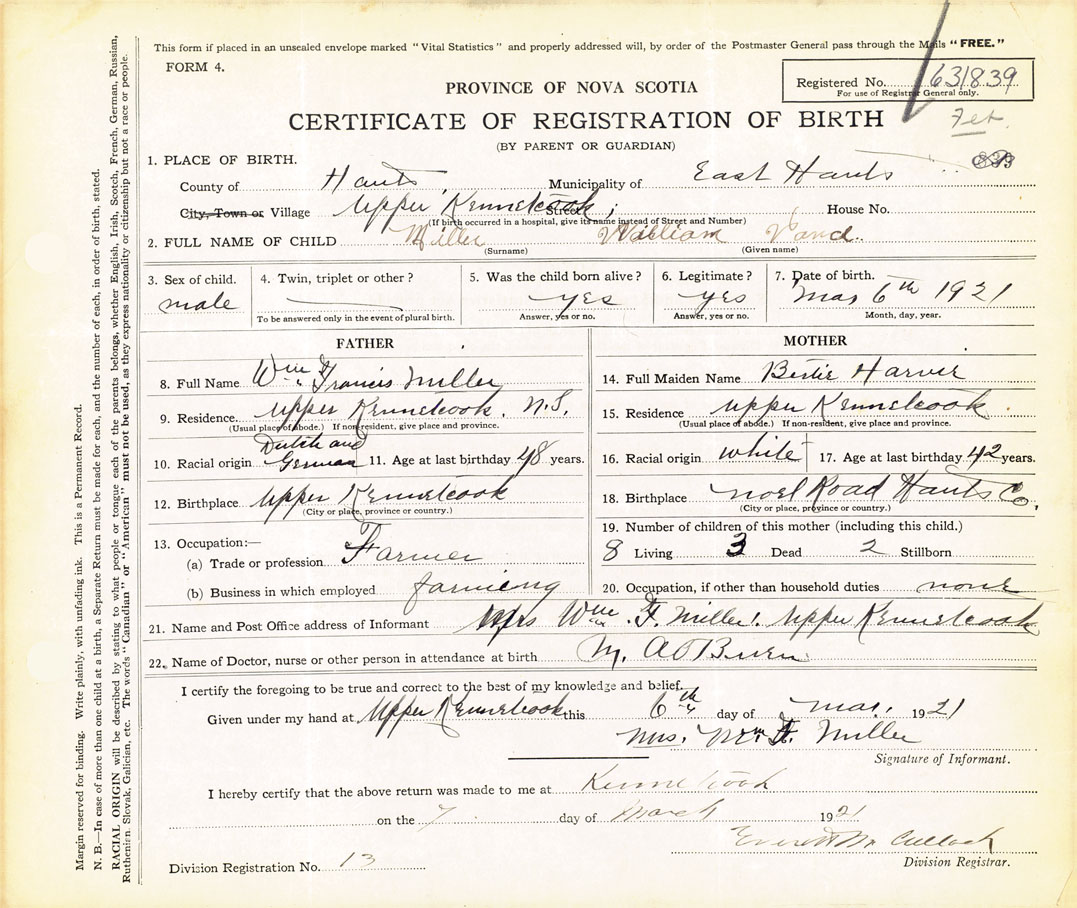 This form if placed in an unsealed envelope marked "Vital Statistics" and properly addressed will, by order of the Postmaster General pass through the Mails "FREE."
FORM 4.
Registered No. 631839
For use of Registrar General only.
PROVINCE OF NOVA SCOTIA
CERTIFICATE OF REGISTRATION OF BIRTH
(BY PARENT OR GUARDIAN)
1. PLACE OF BIRTH.
County of Hants Municipality of East Hants
City, Town or Village Upper Kennetcook Street House No.
(If birth occurred in a hospital, give its name instead of Street and Number)
2. FULL NAME OF CHILD Miller William
(Surname) (Given name)
3. Sex of child. 4. Twin, triplet or other? 5. Was the child born alive? 6. Legitimate? 7. Date of birth.
male yes yes Mar 6th 1921
To be answered only in the event of plural birth. Answer, yes or no. Answer, yes or no. Month, day, year.
FATHER
8. Full Name Wm Francis Miller
9. Residence. Upper Kennetcook. N.S.
(Usual place of abode.) If non-resident, give place and province.
10. Racial origin Dutch and German 11. Age at last birthday 48 years.
12. Birthplace Upper Kennetcook
(City or place, province or country.)
13. Occupation:—
(a) Trade or profession Farmer
(b) Business in which employed farmieng
MOTHER
14. Full Maiden Name Bertie Harvie
15. Residence Upper Kennetcook
(Usual place of abode.) If non-resident, give place and province.
16. Racial origin white 17. Age at last birthday 42 years.
18. Birthplace Noel Road Hants Co.
(City or place, province or country.)
19. Number of children of this mother (including this child.)
8 Living 3 Dead 2 Stillborn
20. Occupation, if other than household duties none
21. Name and Post Office address of Informant Mrs Wm. F. Miller. Upper Kennetcook
22. Name of Doctor, nurse or other person in attendance at birth M. A. O'Brien
I certify the foregoing to be true and correct to the best of my knowledge and belief.
Given under my hand at Upper Kennetcook this 6th day of Mar. 1921
Mrs. Wm F. Miller
Signature of Informant.
I hereby certify that the above return was made to me at Kennetcook
on the 7 day of March 1921
Everett McCulloch
Division Registrar.
Division Registration No. 13
Margin reserved for binding. Write plainly, with unfading ink. This is a Permanent Record.
N. B.—In case of more than one child at a birth, a Separate Return must be made for each, and the number of each, in order of birth, stated.
RACIAL ORIGIN will be described by stating to what people or tongue each of the parents belongs, whether English, Irish, Scotch, French, German, Russian,
Ruthenian, Slovak, Galician, etc. The words "Canadian" or "American" must not be used, as they express nationality or citizenship but not a race or people.